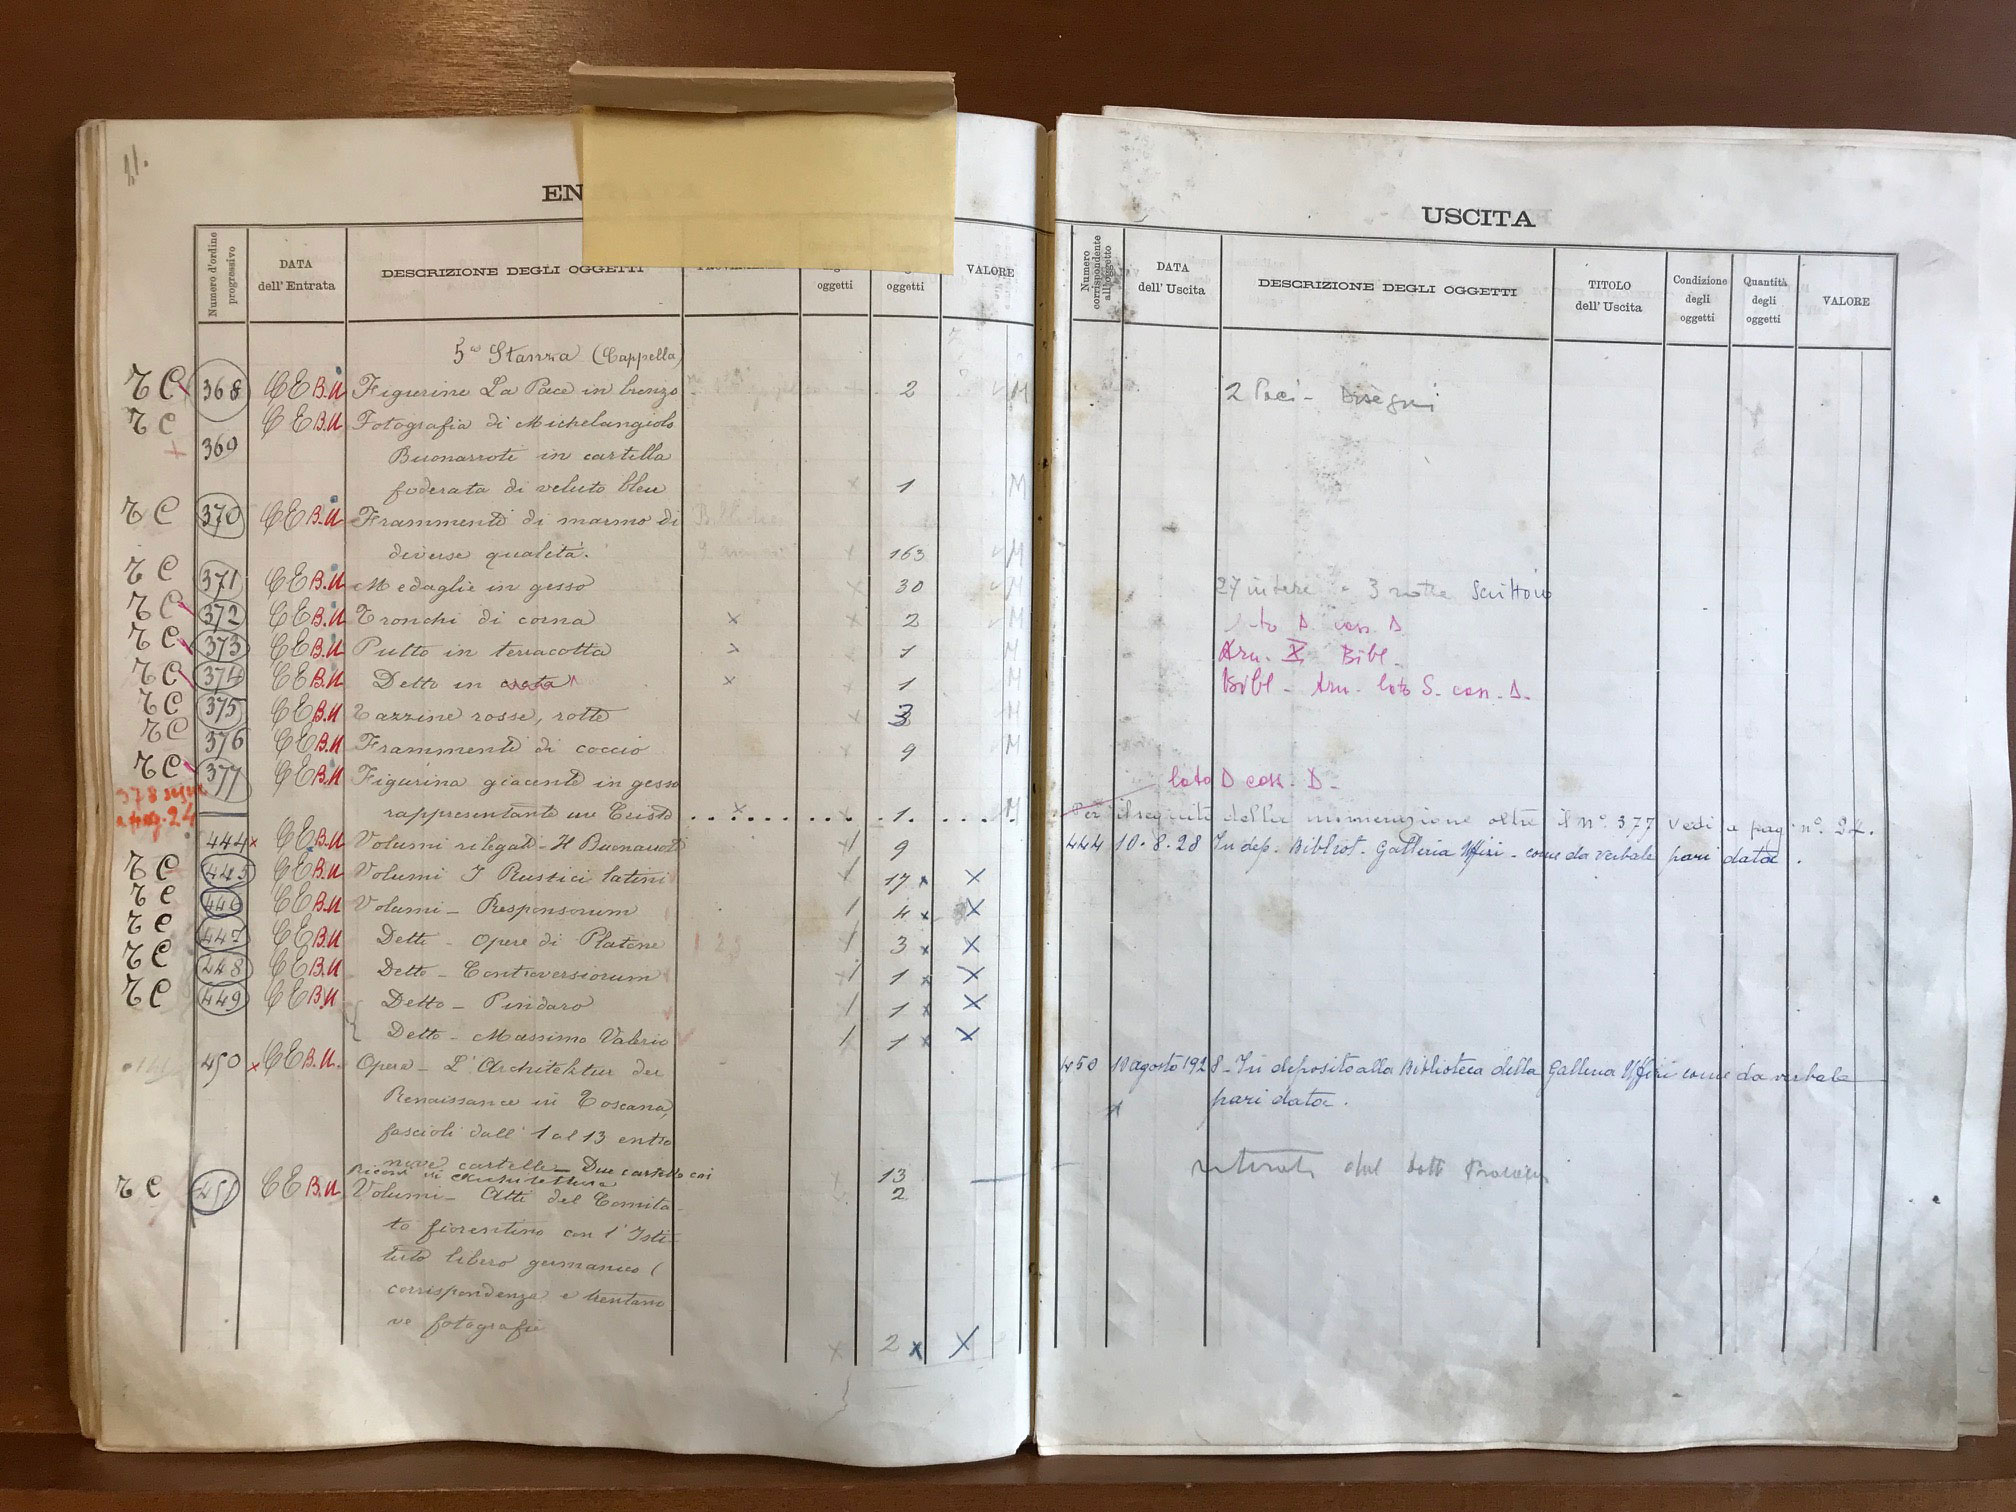 21.
EN
Numero d'ordine progressivo
DATA dell' Entrata
DESCRIZIONE DEGLI OGGETTI
oggetti
oggetti
VALORE
5a Stanza (Cappella)
TC 368 CE B.U Figurine La Pace in bronzo 2 M
TC 369 CE B.U Fotografia di Michelangiolo
Buonarroti in cartella
foderata di veluto bleu 1 M
TC 370 CE B.U Frammenti di marmo di
diverse qualità. 163 M
TC 371 CE B.U Medaglie in gesso 30 M
TC 372 CE B.U Tronchi di corna x 2 M
TC 373 CE B.U Putto in terracotta x 1 M
TC 374 CE B.U Detto in x 1 M
TC 375 CE B.U Tazzine rosse, rotte 3 M
TC 376 CE B.U Frammenti di coccio 9 M
TC 377 CE B.U Figurina giacente in gesso
378 segue a pag. 24
rappresentante un Cristo x 1. M
444 x CE B.U Volumi rilegati - Il Buonarroti / 9
TC 445 CE B.U Volumi I Rustici latini / 17 x X
TC 446 CE B.U Volumi - Responsorum / 4 x X
TC 447 CE B.U Detti - Opere di Platone 123 / 3 x X
TC 448 CE B.U Detto - Controversiorum / 1 x X
TC 449 CE B.U Detto - Pindaro / 1 x X
Detto - Massimo Valerio / 1 x X
450 x CE B.U. Opera - L'Architektur der
Renaissance in Toscana,
fascioli dall' 1 al 13 entro
nove cartelle - Due cartelle coi
Ricordi di Architettura 13
TC 451 CE B.U Volumi - Atti del Comita- 2
to fiorentino con l'Isti-
tuto libero germanico (
corrispondenza e trentano
ve fotografie x 2 x X
USCITA
Numero corrispondente all'oggetto
DATA dell' Uscita
DESCRIZIONE DEGLI OGGETTI
TITOLO dell' Uscita
Condizione degli oggetti
Quantità degli oggetti
VALORE
2 Paci - Disegni
27 intere e 3 rotte Scrittoio
lato D. cass. D
Arm. X Bibl.
Bibl - Arm. lato S. cass. D.
lato D cass. D.
Per il seguito della numerazione oltre il n° 377 vedi a pag. n° 24.
444 10.8.28 In dep. Bibliot. Galleria Uffizi - come da verbale pari data.
450 10 agosto 1928 - In deposito alla Biblioteca della Galleria Uffizi come da verbale
pari data.
dal Dott